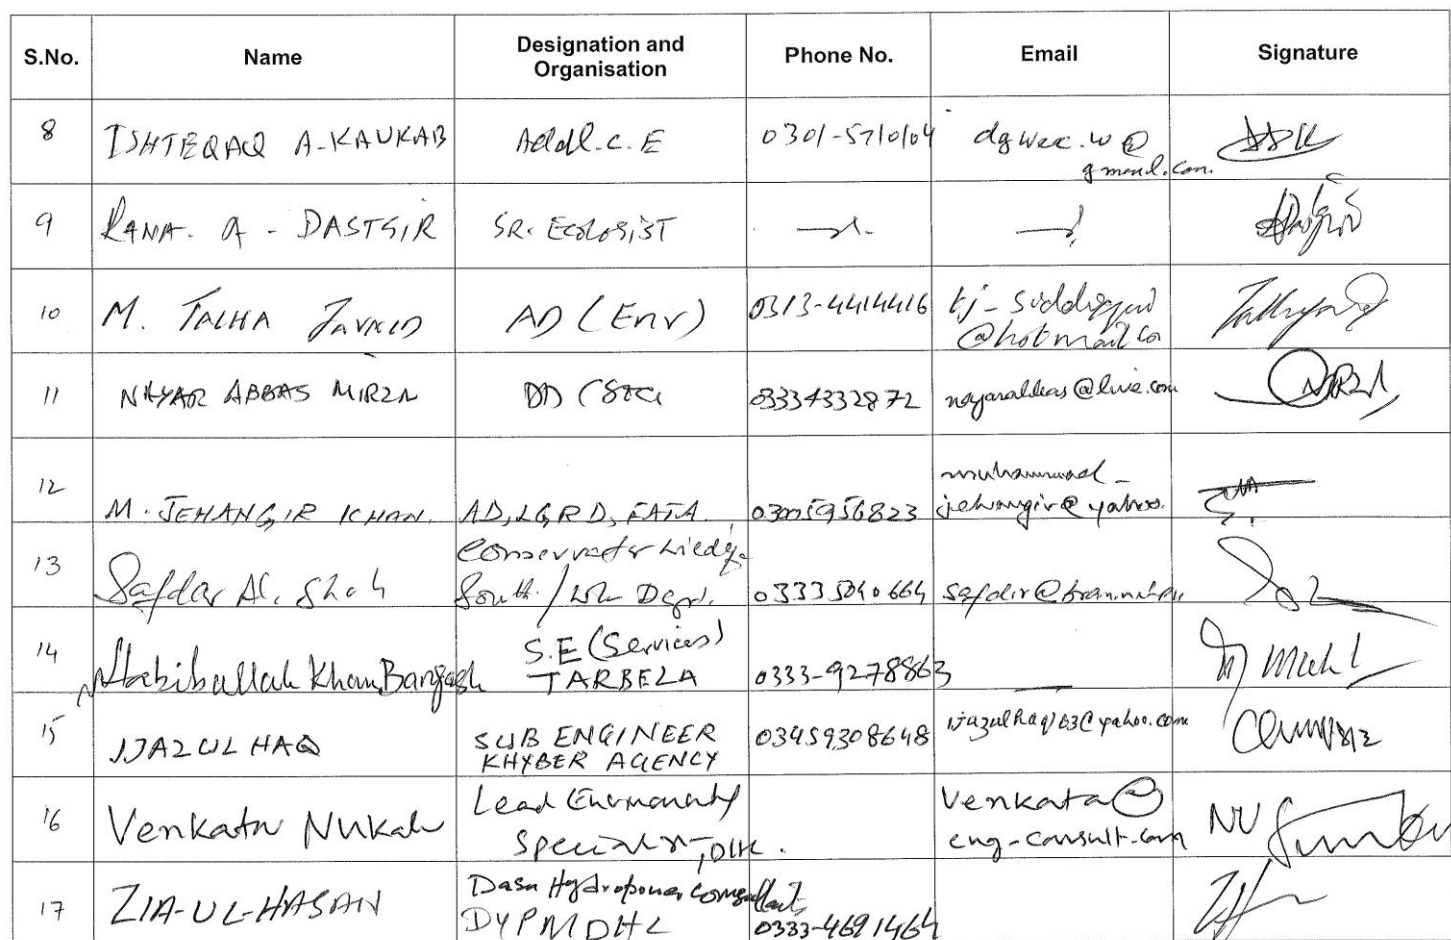 S.No. Name Designation and Organisation Phone No. Email Signature
8 ISHTEQAQ A-KAUKAB Addl. C. E 0301-5710104 dgwec.w@
gmail.com.
9 RANA. A - DASTGIR SR. ECOLOGIST
10 M. TALHA JAVAID AD (Env) 0313-4414416 tj_siddiqqui
@hotmail.co
11 NAYAR ABBAS MIRZA DD 03334332872 nayarabbas@live.com
12 M. JEHANGIR KHAN. AD, LGRD, FATA. 03005956823 muhammad_
jehangir@yahoo.
13 Safdar Al. Shah Conservator
South. / Dept. 03335040664
14 Habibullah Khan Bangash S.E (Services)
TARBELA 0333-9278863
15 IJAZUL HAQ SUB ENGINEER
KHYBER AGENCY 03459308648 ijazulhaq163@yahoo.com
16 Venkata Nukala Lead
Specialist, DHC. Venkata@
eng-consult.com
17 ZIA-UL-HASAN Dasu Hydropower Consultants
DYPM DHC 0333-4691464